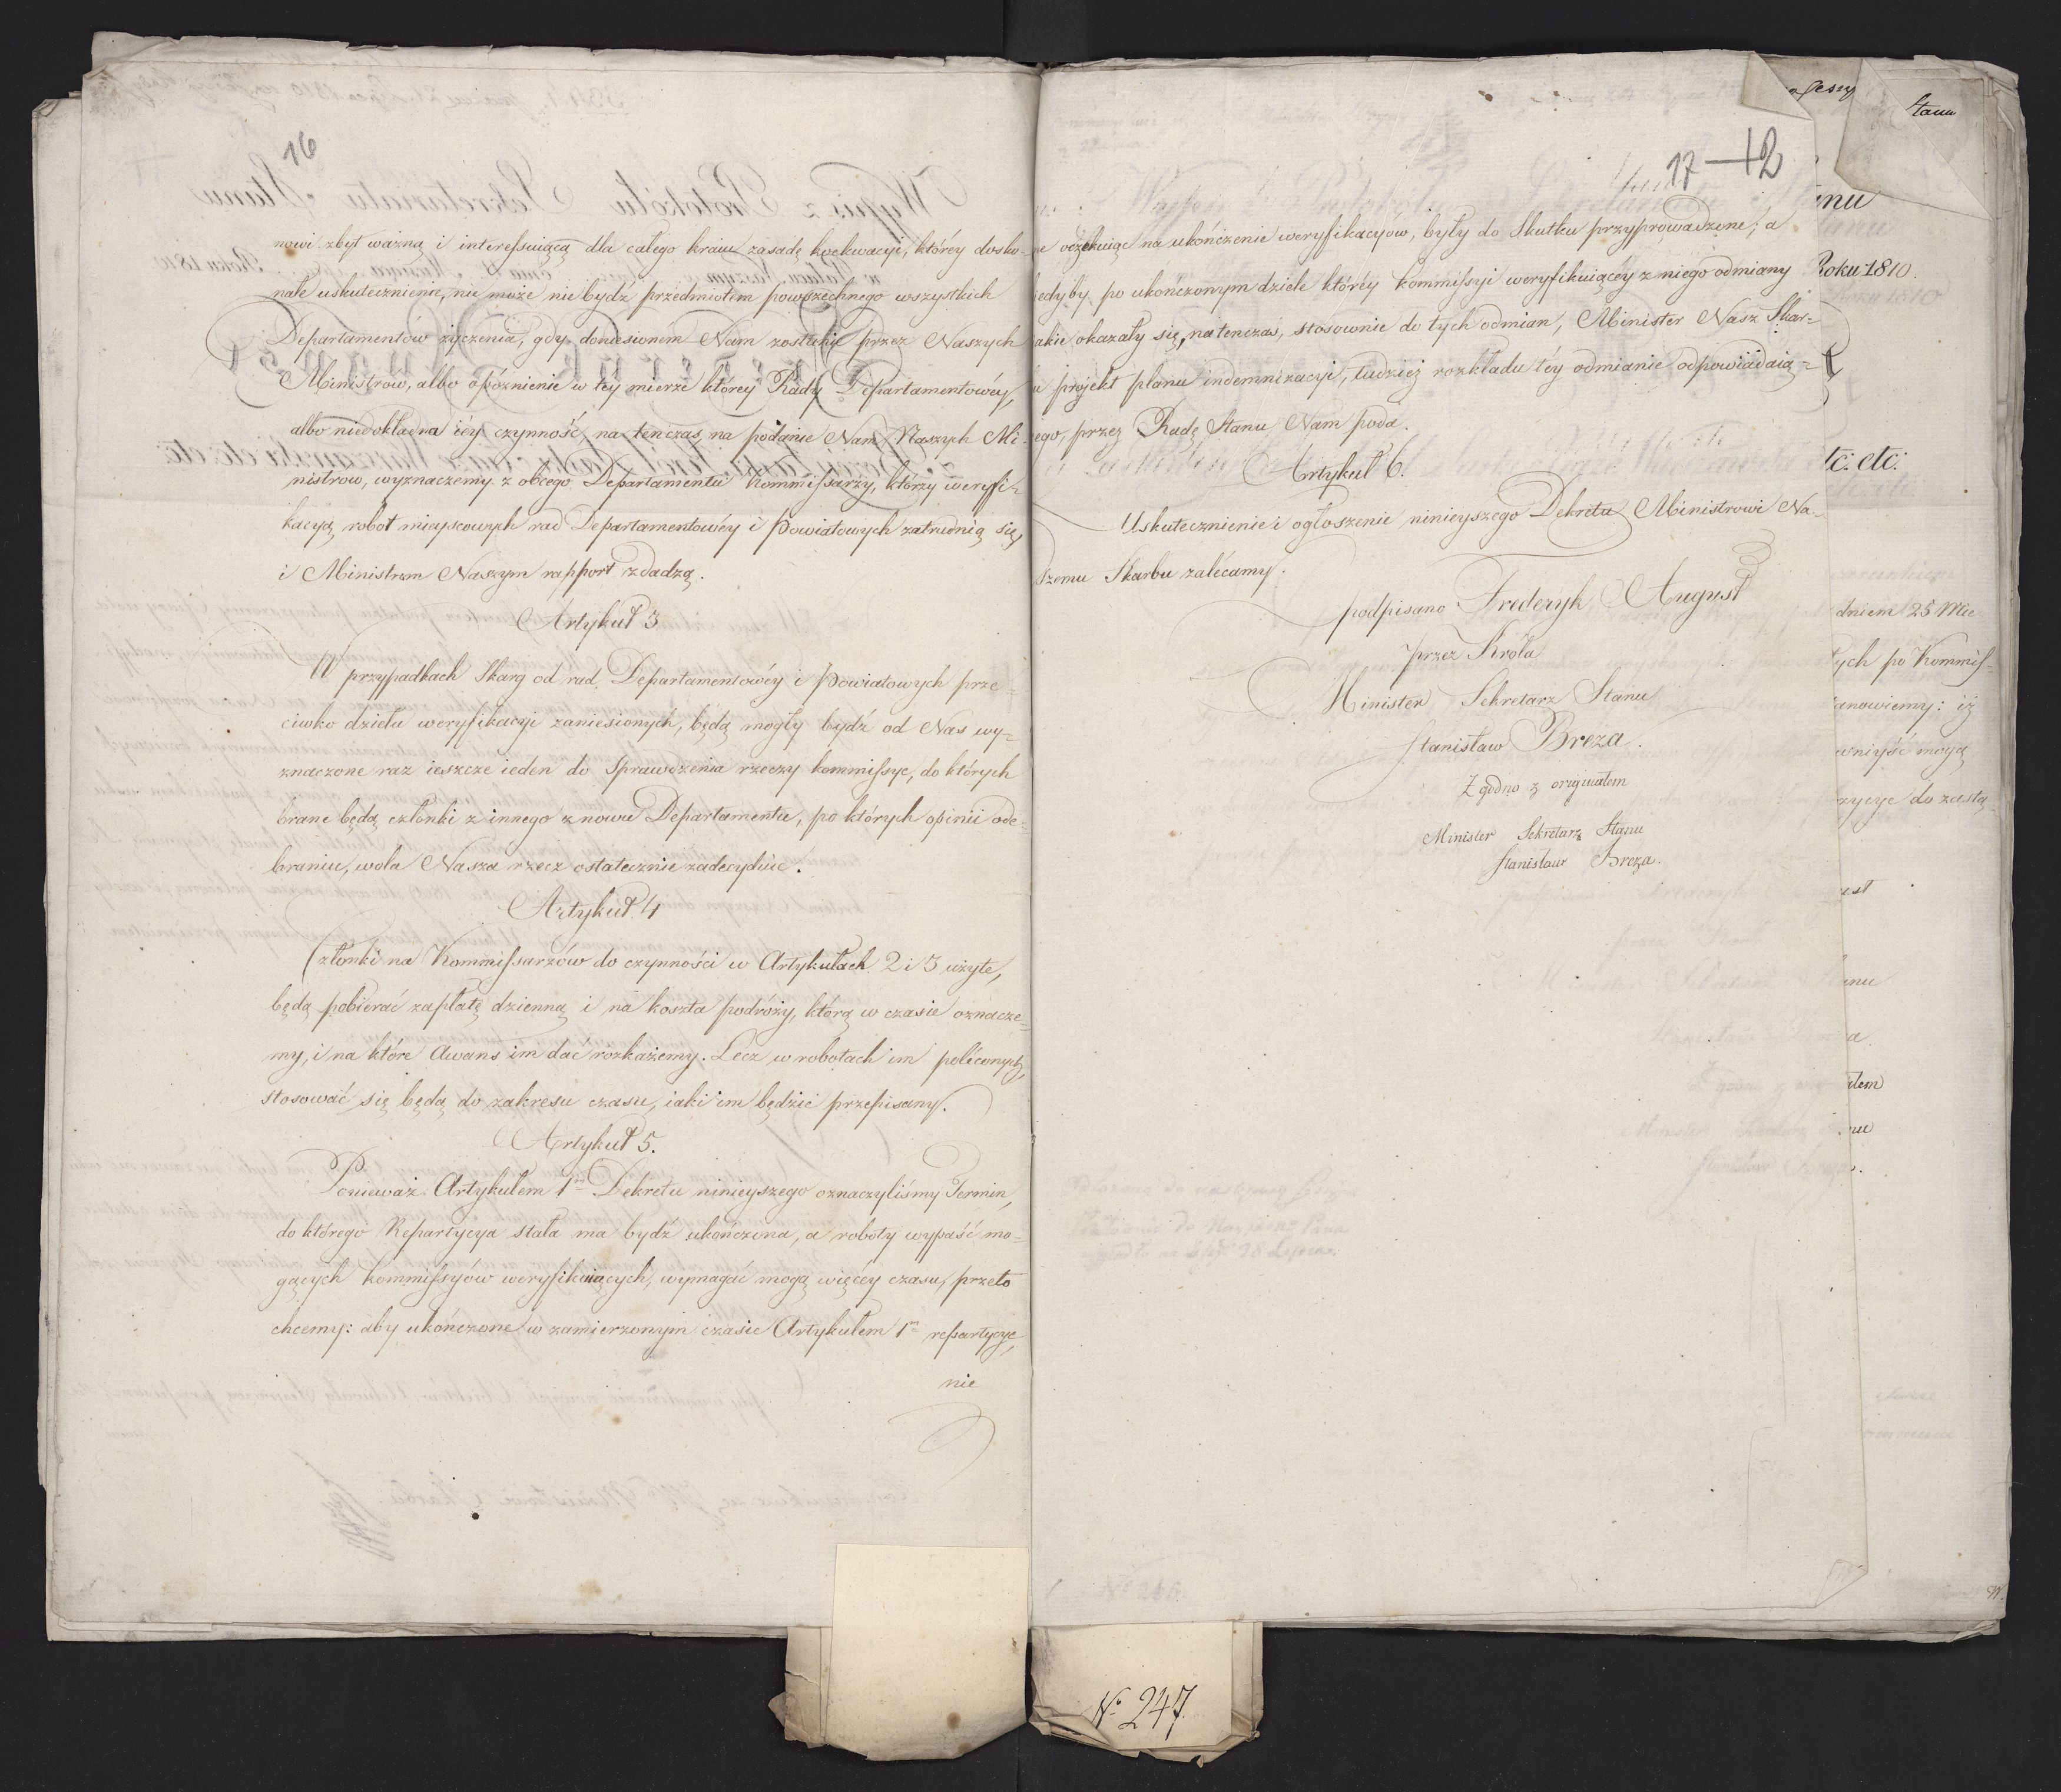 16
nowi zbyt ważną i interessuiącą dla całego kraiu zasadę koekwacyi, którey dosko-
nałe uskutecznienie, nie może nie bydź przedmiotem powszechnego wszystkich
Departamentów życzenia, gdy doniesionem Nam zostanie przez Naszych
Ministrów, albo opóznienie w tey mierze którey Rady Departamentowéy,
albo niedokładna iéy czynność, na tenczas na podanie Nam Naszych Mi-
nistrow, wyznaczemy z obcego Departamentu Kommissarzy, którzy weryfi-
kacyą robot mieyscowych rad Departamentowéy i Powiatowych zatrudnią się,
i Ministrom Naszym rapport zdadzą.
Artykuł 3
W przypadkach Skarg od rad Departamentowéy i Powiatowych prze-
ciwko dziełu weryfikacyi zaniesionych, będą mogły bydź od Nas wy-
znaczone raz ieszcze ieden do Sprawdzenia rzeczy kommissye, do których
brane będą członki z innego znowu Departamentu, po których opinii ode-
braniu, wola Nasza rzecz ostatecznie zadecyduie.
Artykuł 4
Członki na Kommissarzów do czynności w Artykułach 2 i 3 użyte,
będą pobierać zapłatę dzienną i na koszta podróży, którą w czasie oznacze-
my, i na które Awans im dać rozkażemy. Lecz w robotach im poleconych,
stosować się będą do zakresu czasu, iaki im będzie przepisany.
Artykuł 5.
Ponieważ Artykułem 1m Dekretu ninieyszego oznaczyliśmy Termin,
do którego Repartycya stała ma bydź ukończona, a roboty wypaść mo-
gących kommissyów weryfikuiących, wymagać mogą więcéy czasu, przeto
chcemy: aby ukończone w zamierzonym czasie Artykułem 1m repartycye,
nie
17 12
oczekuiąc na ukończenie weryfikacyów, były do Skutku przyprowadzone; a
edyby po ukończonym dziele któréy kommissyi weryfikuiącéy z niego odmiany
akie okazały się, na tenczas, stosownie do tych odmian, Minister Nasz Skar-
u projekt planu indemnizacyi, tudzież rozkładu téy odmianie odpowiadaią-
ego, przez Radę Stanu Nam poda.
Artykuł 6.
Uskutecznienie i ogłoszenie ninieyszego Dekretu Ministrowi Na-
szemu Skarbu zalécamy.
podpisano Frederyk August
przez Króla
Minister Sekretarz Stanu
Stanisław Breza.
Zgodno z originałem
Minister Sekretarz Stanu
Stanisław Breza.
Stanu
anu
Roku 1810.
tc: etc:
dniem 25 Mie-
tych po Kommiss-
anowiemy: iż
wniyść mogą
zycye do zastą-
ust
anu
a.
ałem
nu
No 247.